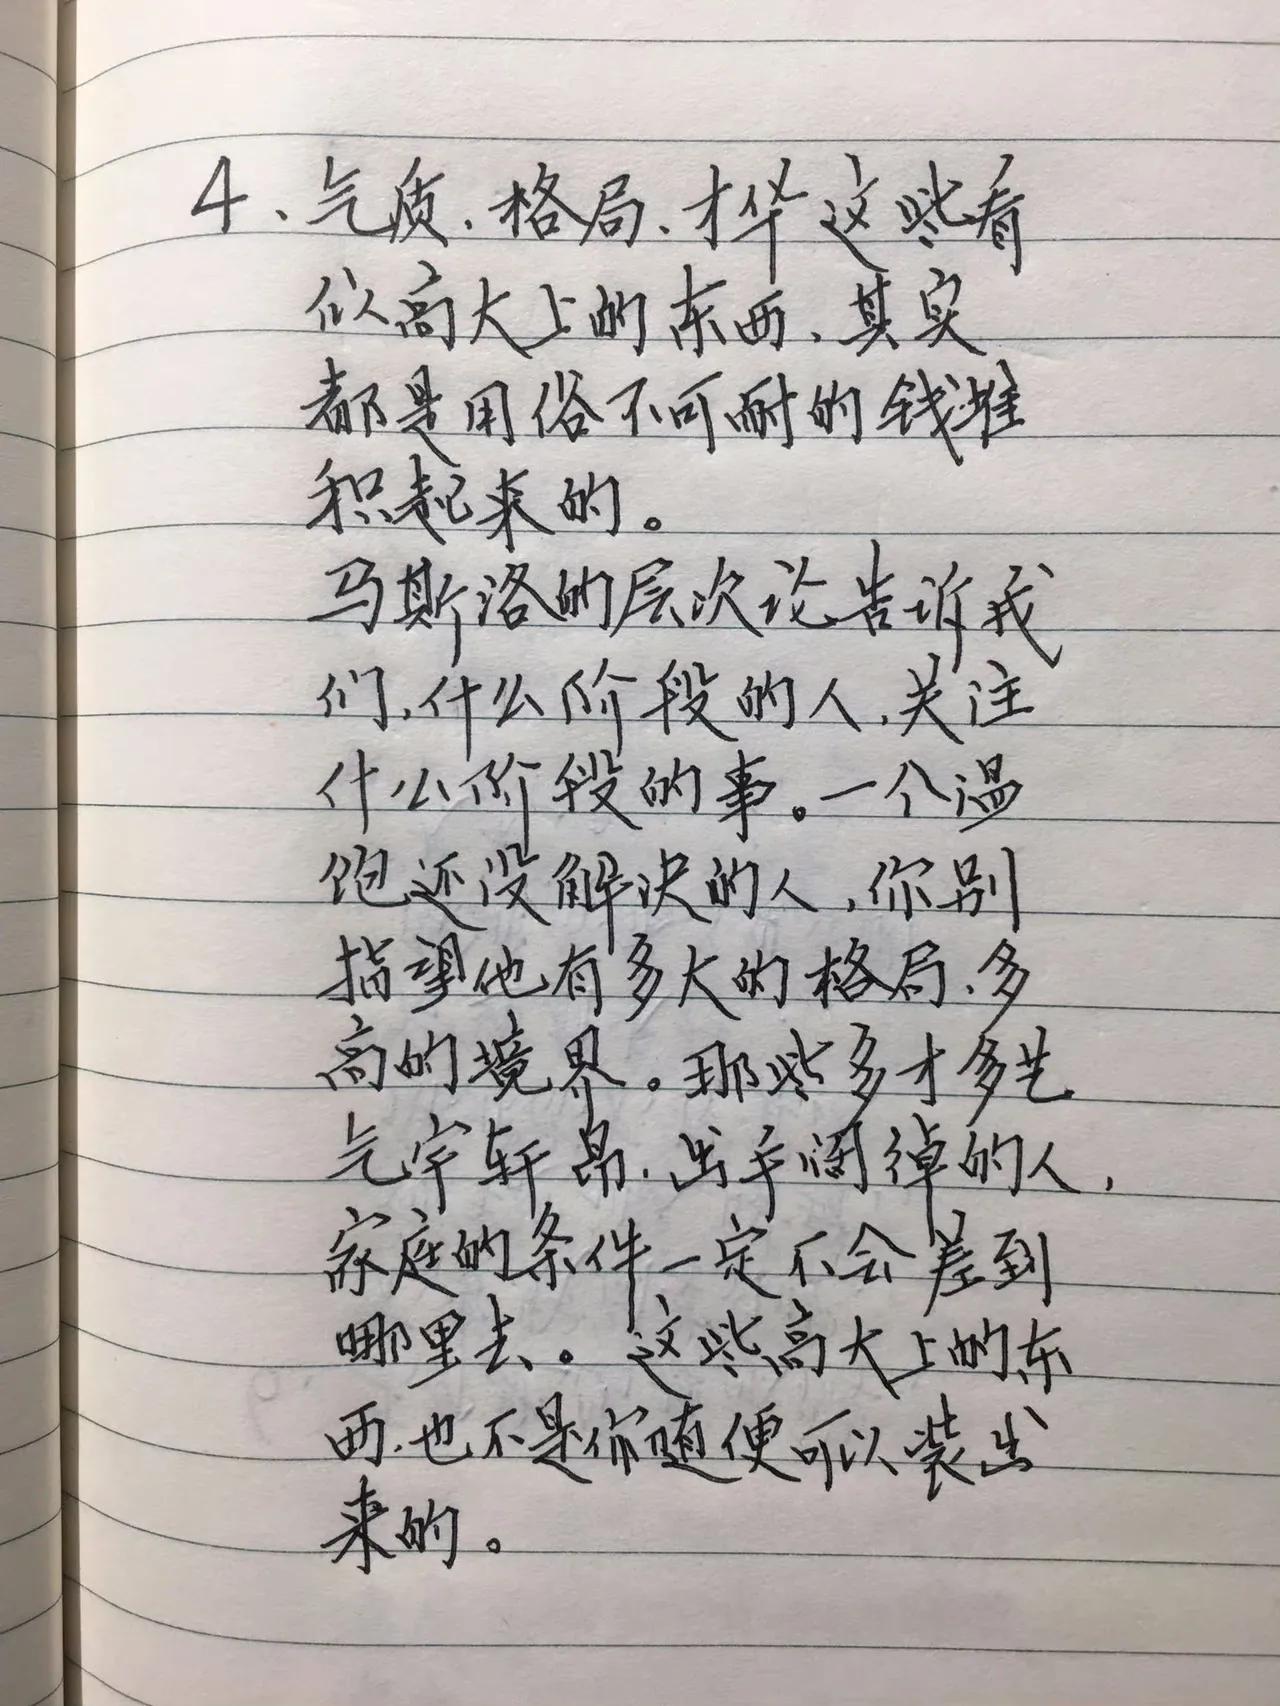 4、气质、格局、才华这些看
似高大上的东西、其实
都是用俗不可耐的钱堆
积起来的。
马斯洛的层次论告诉我
们,什么阶段的人,关注
什么阶段的事。一个温
饱还没解决的人,你别
指望他有多大的格局、多
高的境界。那些多才多艺
气宇轩昂、出手阔绰的人,
家庭的条件一定不会差到
哪里去。这些高大上的东
西、也不是你随便可以装出
来的。